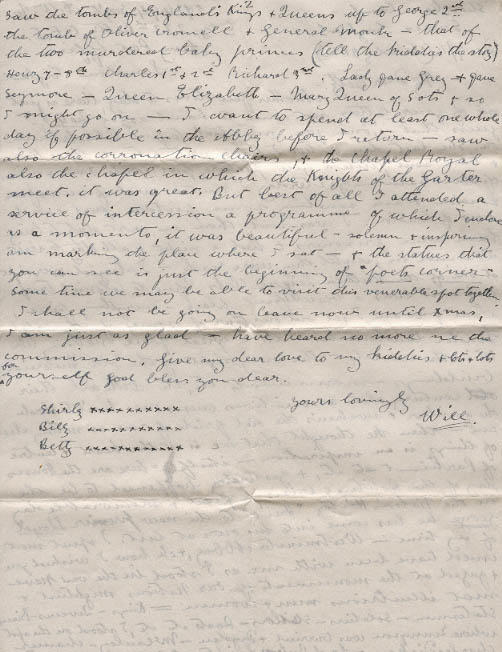 Saw the tombs of England's Kings + Queens up to George 2nd
the tomb of Oliver Cromwell + General Monk - that of
the two murdered baby princes (tell the kiddies the story)
Henry 7 - 8th Charles 1st + 2nd Richard 3rd. Lady Jane Grey + Jane
Seymore - Queen Elizabeth - Mary Queen of Scots + so
I might go on - I want to spend at least one whole
day if possible in the Abbey before I return - saw
also the corronation chairs, + the Chapel Royal
also the chapel in which the Knights of the Garter
meet. it was great. But best of all I attended a
service of intercession a programme of which I enclose
as a momento, it was beautiful - solemn + inspiring
am marking the place where I sat - + the statues that
you can see is just the beginning of "poets corner" -
Some time we may be able to visit this venerable spot together
I shall not be going on leave now until Xmas,
I am just as glad - have heard no more re the
commission. Give my dear love to my kiddies + lots + lots
for yourself God bless you dear.
Yours lovingly
Will.
Shirly xxxxxxxxxx
Billy xxxxxxxxxx
Betty xxxxxxxxxx